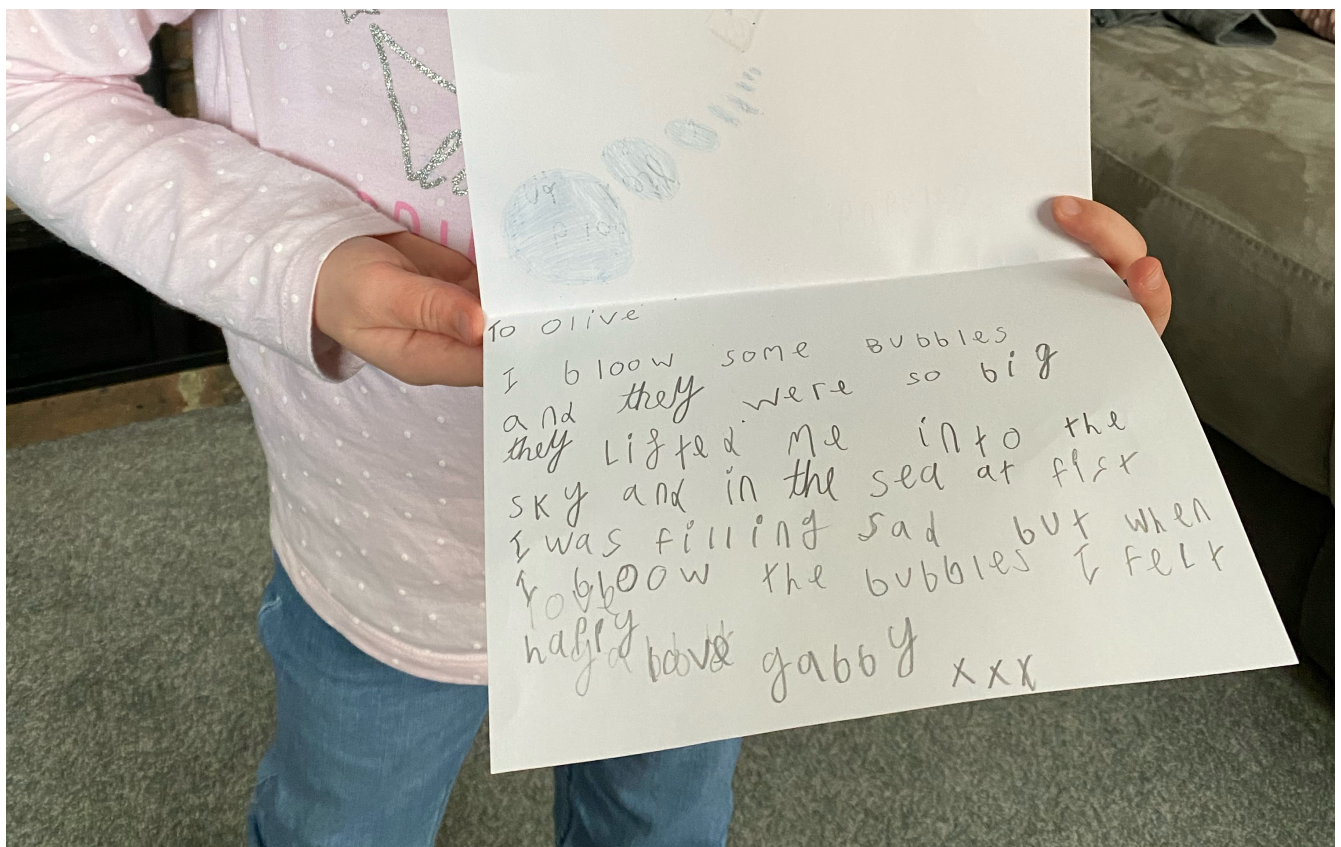 To Olive
I bloow some Bubbles
and they were so big
they Lifted me into the
sky and in the sea at fist
I was filling sad but when
I bloow the bubbles I FeLt
happy
gabby xxx